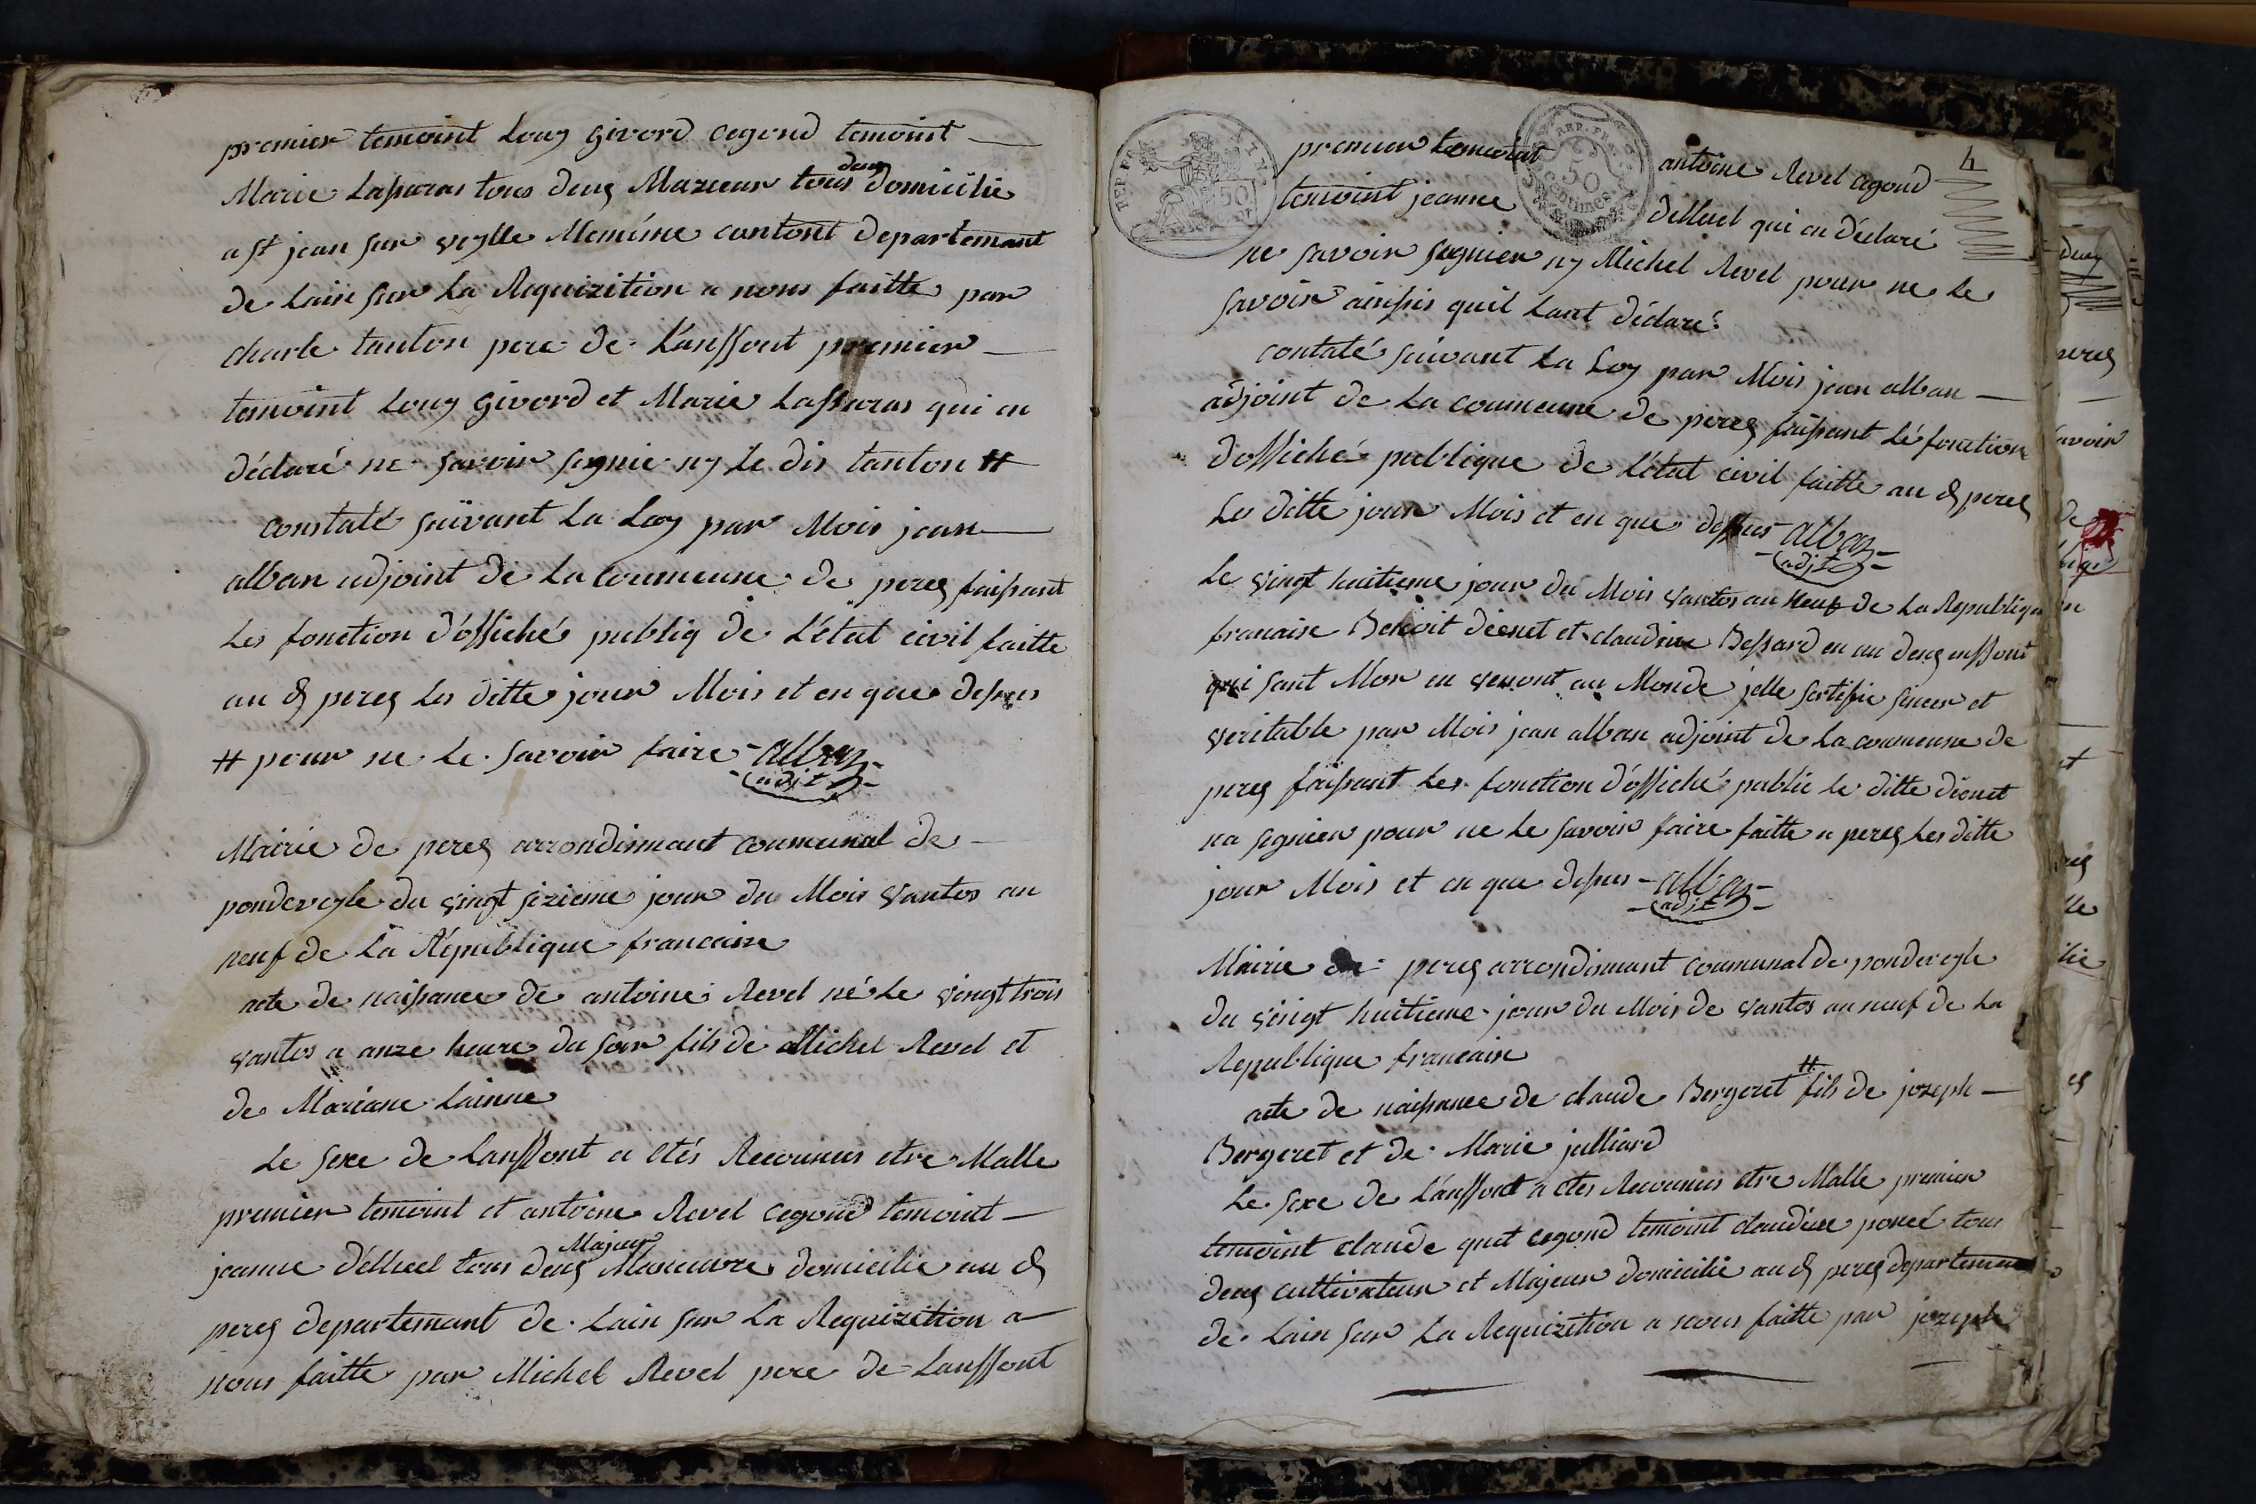 premier temoint Louy Giverd cegond temoint
deux
Marie Lassaras tous deux Majeur tous domicilie
a st jean sur veylle Memime contont departemant
de Lain sur La Requizition a nous faitte par
charle tanton pere de L'anffont premier
temoint Louy Giverd et Marie Lassaras qui on
déclaré ne savoir signie ny Le dis tanton #
constaté suivant La Loy par Mois jean
alban adjoint de La coumeune de perex faisant
Les fonction d'offiché publiq de L'état civil faitte
au d perex Les ditte jour Mois et en que dessus
# pour ne Le savoir faire - alban
adjt
Mairie de perex arrondimant coumunal de
pondeveyle du vingt sizieme jour du Mois vantos an
neuf de La République francaise
acte de naissance de antoine Revel né Le vingt trois
vantos a anze heure du soir fils de Michel Revel et
de Mariane Lainne
Le sexe de Lanffont a étés Reconnus etre Malle
premier temoint et antoine Revel cegond temoint
Majeur
jeanne délluel tous deux Maneuvre domicilie au d
perex departemant de Lain sur La Requizition a
nous faitte par Michel Revel pere de Lanffont
REP. FRA.
50
REP. FRA.
50
centimes
4
premier temoint antoine Revel cegond
temoint jeanne delluel qui on déclaré
ne savoir segnier ny Michel Revel pour ne Le
savoir ainssis quil Lant déclaré
contaté suivant La Loy par Mois jean alban
adjoint de La coumeune de perex faissant Lé fonction
d'offiché publique de L'état civil faitte au d perex
Les ditte jour Mois et en que dessus - alban
adjt
Le vingt huitieme jour du Mois vantos an neuf de La Republique
francaise Benoit dienet et claudine Bessard on nu deux enffont
qui sont Mor en venont au Monde jelle sertifie sincer et
veritable par Mois jean alban adjoint de La coumeune de
perex faissant Les fonction d'offiché public le ditte dienet
na segnier pour ne Le savoir faire faitte a perex Les ditte
jour Mois et en que dessus - alban
adjt
Mairie de perex arrondimant coumunal de pondeveyle
du vingt huitieme jour du Mois de vantos an neuf de La
Republique francaise
acte de naissance de claude Bergeret # fils de jozeph
Bergeret et de Marie julliard
Le sexe de L'anffont a etés Reconnus etre Malle premier
temoint claude quet cegond temoint claudine poncé tous
deux cultivateur et Majeur domicilie au d perex departemant
de Lain sur La Requizition a nous faitte par jozeph